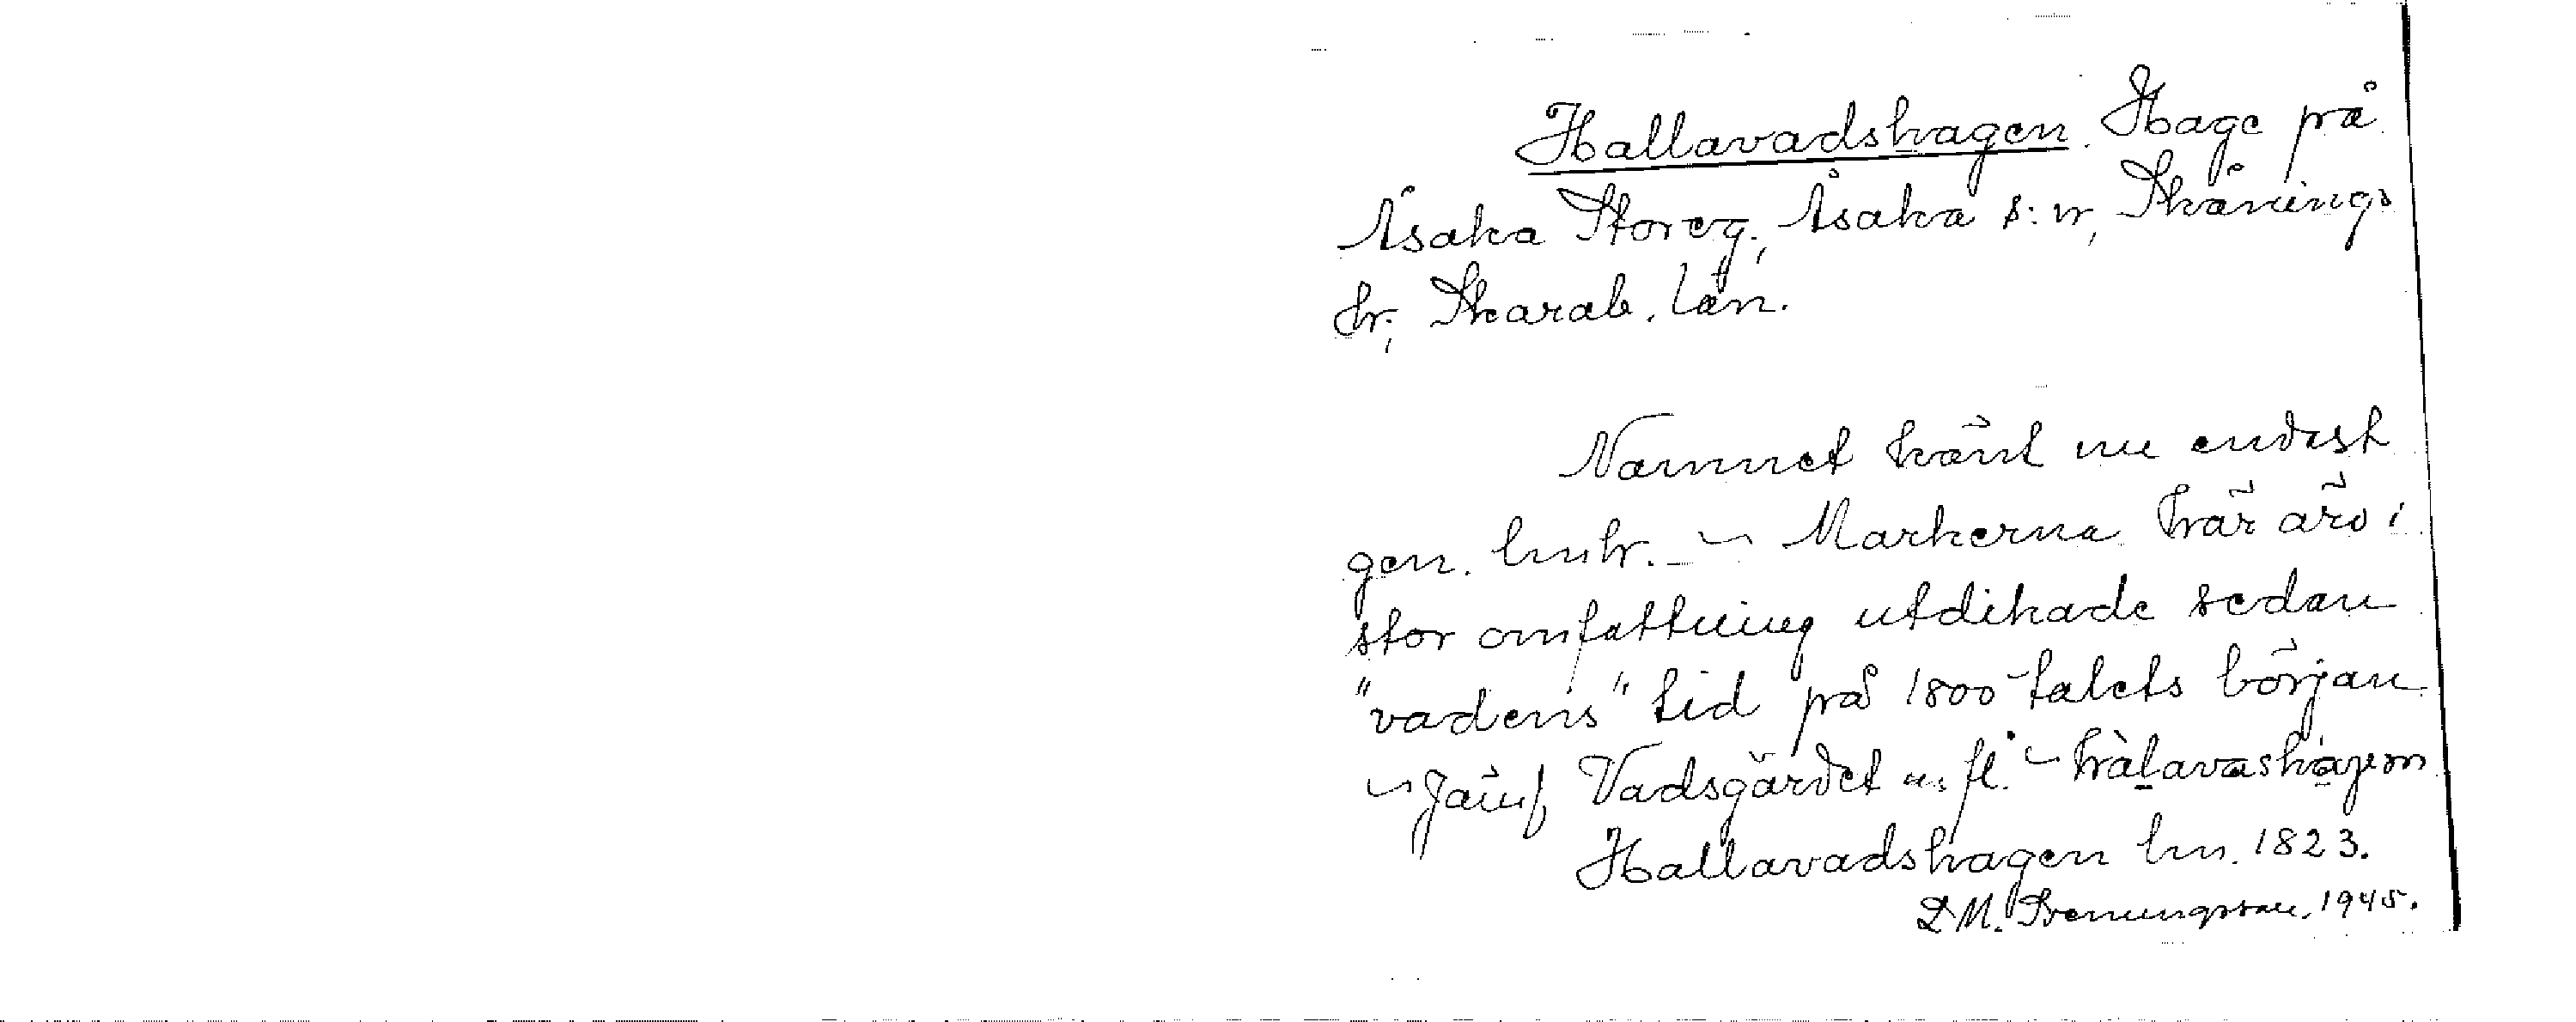 Hallavadshagen. Hage på
Åsaka Storeg., Åsaka s:n, Skånings
hr., Skarab. län.
Namnet känt nu endast
gen. lmhr. – Markerna här äro i
stor omfattning utdikade sedan
"vadens" tid på 1800-talets början.
– Jämf Vadsgärdet m. fl. –
Hallavadshagen lm. 1823.
L M. Svenungsson, 1945.